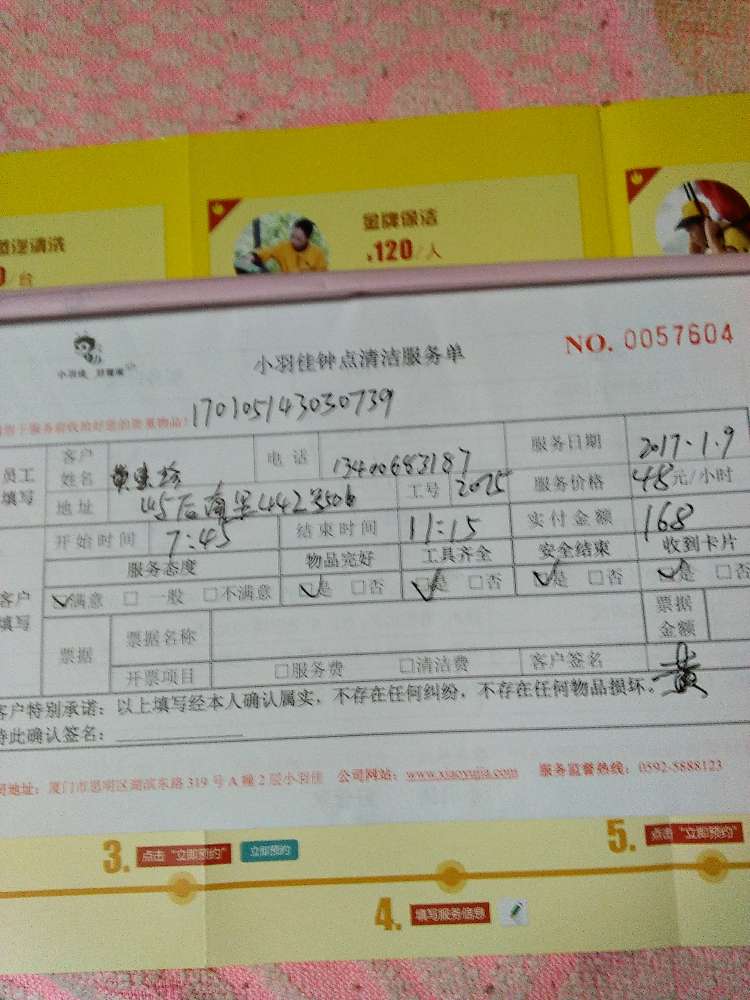 金牌保洁
¥120/人
台
小羽佳钟点清洁服务单
NO. 0057604
小羽佳
170105143030739
员工填写
客户姓名
电话 13400683187
服务日期 2017.1.9
地址
工号 2025
服务价格 48元/小时
开始时间 7:45
结束时间 11:15
实付金额 168
客户填写
服务态度
物品完好
工具齐全
安全结束
收到卡片
☑满意 □一般 □不满意
☑是 □否
☑是 □否
☑是 □否
☑是 □否
票据
票据名称
票据金额
开票项目
□服务费 □清洁费
客户签名 黄
客户特别承诺:以上填写经本人确认属实,不存在任何纠纷,不存在任何物品损坏。
特此确认签名:
司地址:厦门市思明区湖滨东路319号A幢2层小羽佳 公司网站:www.xiaoyujia.com 服务监督热线:0592-5688123
3. 点击“立即预约” 立即预约
5. 点击“立即预约”
4. 填写服务信息